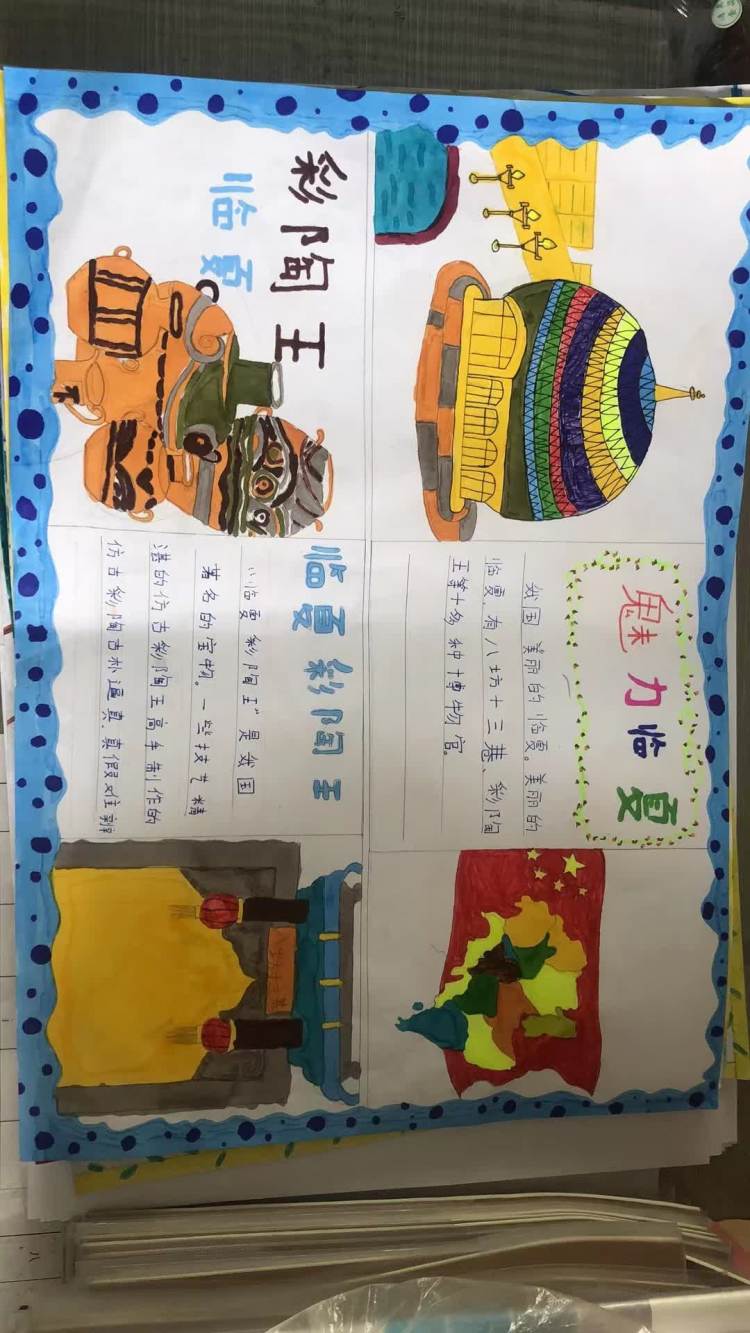 魅力临夏
我国美丽的临夏。美丽的
临夏,有八坊十三巷、彩陶
王等十多种博物官。
彩陶王
临夏
临夏彩陶王
“临夏彩陶王”是我国
著名的宝物。一些技艺精
湛的仿古彩陶王高手制作的
仿古彩陶古朴逼真,真假难辨